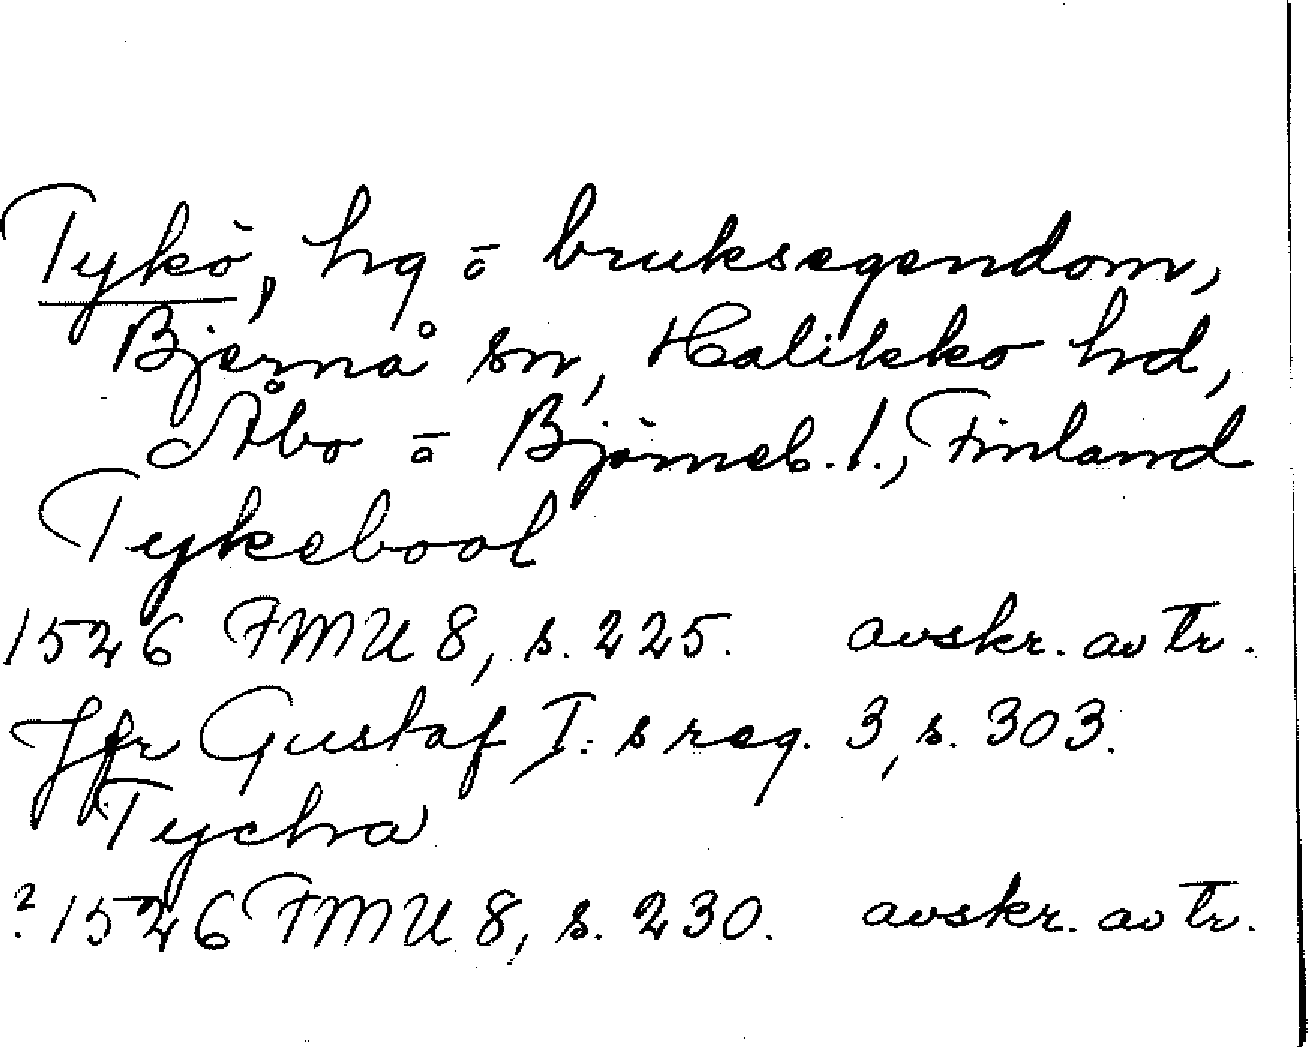 Tykö, hg ō bruksegendom,
Bjernå sn, Halikko hd,
Åbo ō Björneb. l., Finland
Tykebool
1526 FMU 8, s. 225. avskr. av tr.
Jfr Gustaf I:s reg. 3, s. 303.
Tycha
? 1526 FMU 8, s. 230. avskr. av tr.